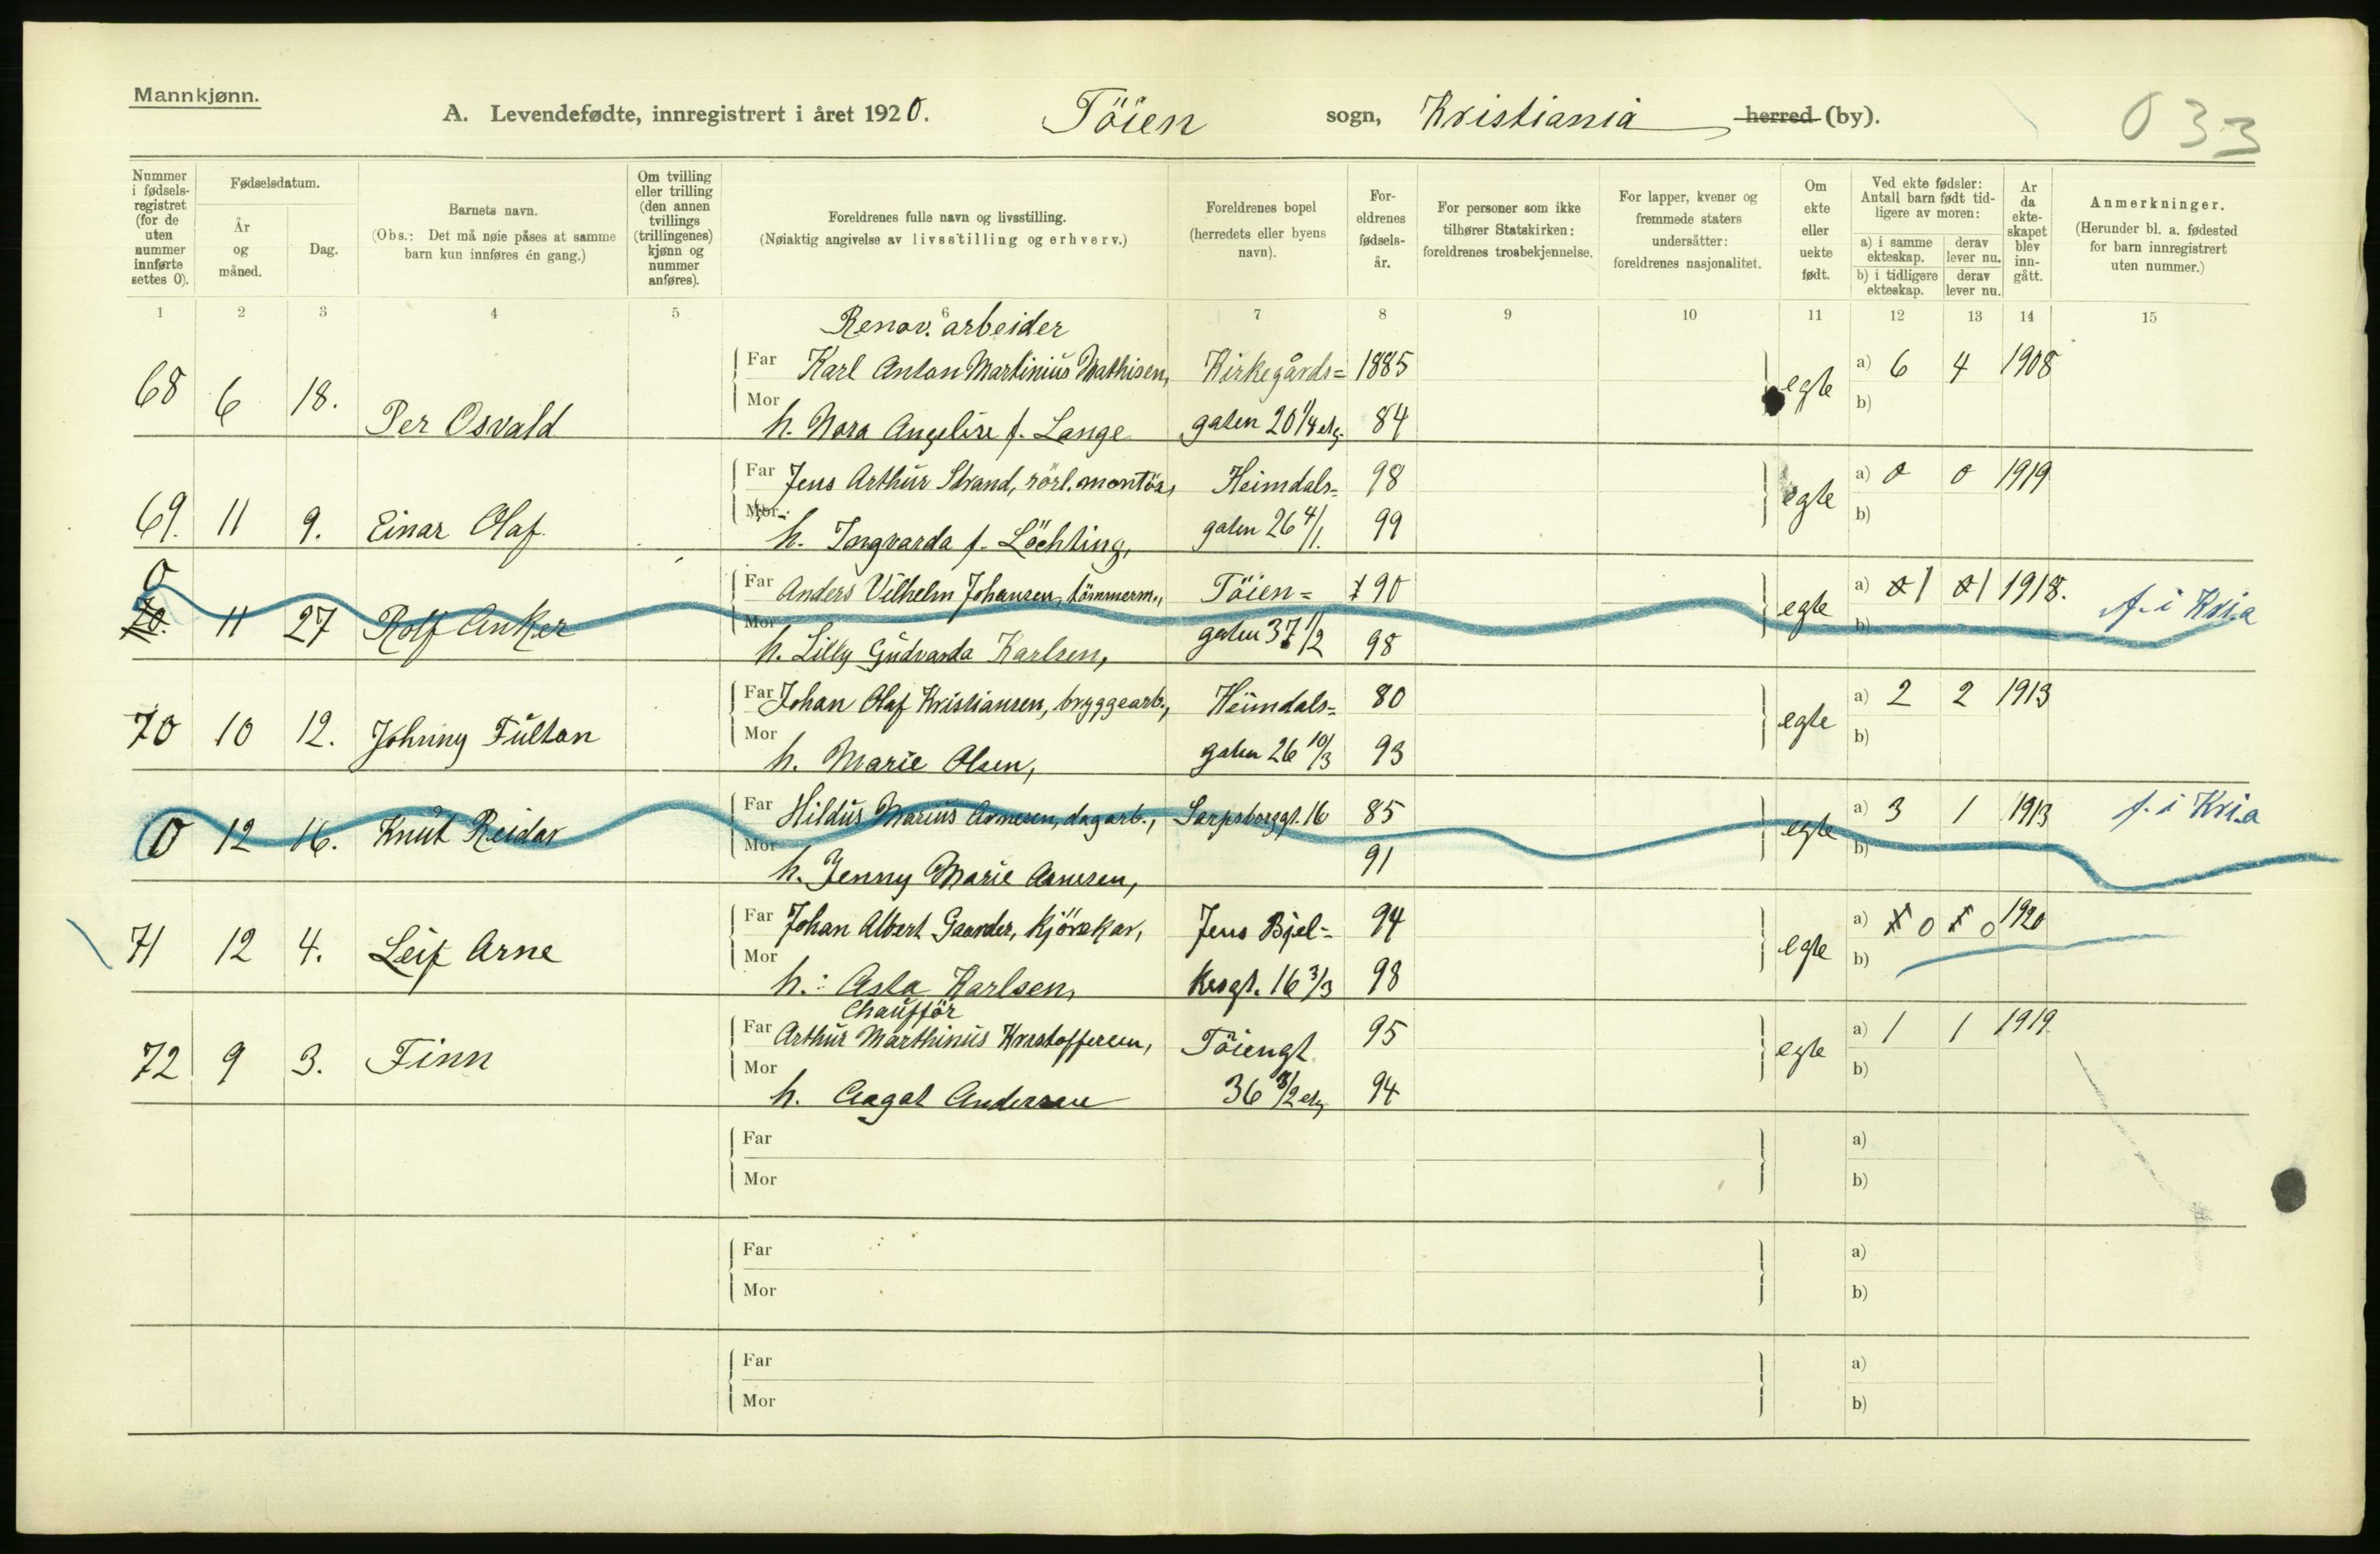 Mannkjønn.
A. Levendefødte, innregistrert i året 1920. Töien sogn, Kristiania herred (by).
033
Nummer i fødsels-registret (for de uten nummer innførte settes 0).
Fødselsdatum.
År og måned.
Dag.
Barnets navn.
(Obs.: Det må nøie påses at samme barn kun innføres én gang.)
Om tvilling eller trilling (den annen tvillings (trillingenes) kjønn og nummer anføres).
Foreldrenes fulle navn og livsstilling.
(Nøiaktig angivelse av livsstilling og erhverv.)
Foreldrenes bopel (herredets eller byens navn).
For-eldrenes fødsels-år.
For personer som ikke tilhører Statskirken: foreldrenes trosbekjennelse.
For lapper, kvener og fremmede staters undersåtter: foreldrenes nasjonalitet.
Om ekte eller uekte født.
Ved ekte fødsler: Antall barn født tid-ligere av moren:
a) i samme ekteskap. derav lever nu.
b) i tidligere ekteskap. derav lever nu.
År da ekte-skapet blev inn-gått.
Anmerkninger.
(Herunder bl. a. fødested for barn innregistrert uten nummer.)
1 2 3 4 5 6 7 8 9 10 11 12 13 14 15
Renov. arbeider
68 6 18. Per Osvald Far Karl Anton Martinius Mathisen, Kirkegårds= 1885 egte a) 6 4 1908
Mor h. Nora Angelise f. Lange gaten 20 1/4 etg. 84 b)
69. 11 9. Einar Olaf Far Jens Arthur Strand, rörl. montör, Heimdals= 98 egte a) 0 0 1919
Mor: h. Ingvarda f. Löchting, gaten 26 4/1. 99 b)
0
70. 11 27 Rolf Anker Far Anders Vilhelm Johansen, tömmerm., Töien= 90 egte a) 1 1 1918. f. i Kria
Mor h. Lilly Gudvarda Karlsen, gaten 37 1/2 98 b)
70 10 12. Johnny Fultan Far Johan Olaf Kristiansen, bryggearb., Heimdals= 80 egte a) 2 2 1913
Mor h. Marie Olsen, gaten 26 10/3 93 b)
0 12 16. Knut Reidar Far Hildus Marius Arnesen, dagarb., Sarpsborggt. 16 85 egte a) 3 1 1913 f. i Kria
Mor h. Jenny Marie Arnesen, 91 b)
71 12 4. Leif Arne Far Johan Albert Gaarder, kjörekar, Jens Bjel= 94 egte a) 0 0 1920
Mor h.: Asta Karlsen, kesgt. 16 3/3 98 b)
Chaufför
72 9 3. Finn Far Arthur Marthinius Kristoffersen, Töiengt. 95 egte a) 1 1 1919
Mor h. Aagot Andersen 36 3/2 etg 94 b)
Far a)
Mor b)
Far a)
Mor b)
Far a)
Mor b)